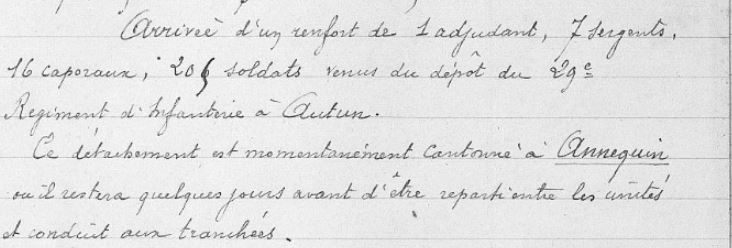 Arrivée d'un renfort de 1 adjudant, 7 sergents,
16 caporaux, 205 soldats venus du dépôt du 29e
Regiment d'Infanterie à Autun.
Ce détachement est momentanément cantonné à Annequin
ou il restera quelques jours avant d'être reparti entre les unités
et conduit aux tranchées.